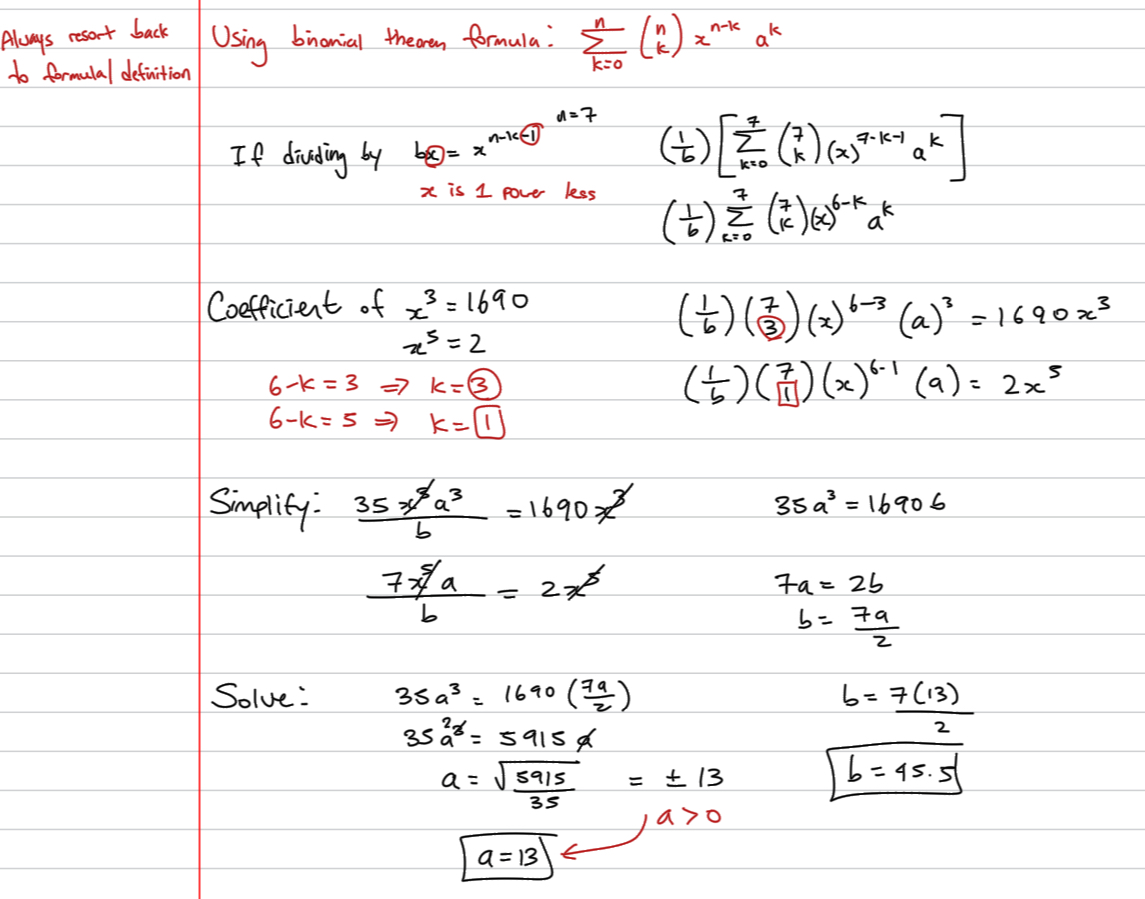 Always resort back
to formulal definition
Using binomial theorem formula: \sum_{k=0}^{n} \binom{n}{k} x^{n-k} a^k
If dividing by bx = x^{n-k-1} n=7
x is 1 power less
(\frac{1}{b}) [\sum_{k=0}^{7} \binom{7}{k} (x)^{7-k-1} a^k]
(\frac{1}{b}) \sum_{k=0}^{7} \binom{7}{k} (x)^{6-k} a^k
Coefficient of x^3 = 1690
x^5 = 2
6-k = 3 ⇒ k = 3
6-k = 5 ⇒ k = 1
(\frac{1}{b}) \binom{7}{3} (x)^{6-3} (a)^3 = 1690x^3
(\frac{1}{b}) \binom{7}{1} (x)^{6-1} (a) = 2x^5
Simplify: \frac{35x^3a^3}{b} = 1690x^3
35a^3 = 1690b
\frac{7x^5a}{b} = 2x^5
7a = 2b
b = \frac{7a}{2}
Solve: 35a^3 = 1690 (\frac{7a}{2})
35a^{2} = 5915a
a = \sqrt{\frac{5915}{35}} = ± 13
a > 0
a = 13
b = \frac{7(13)}{2}
b = 45.5